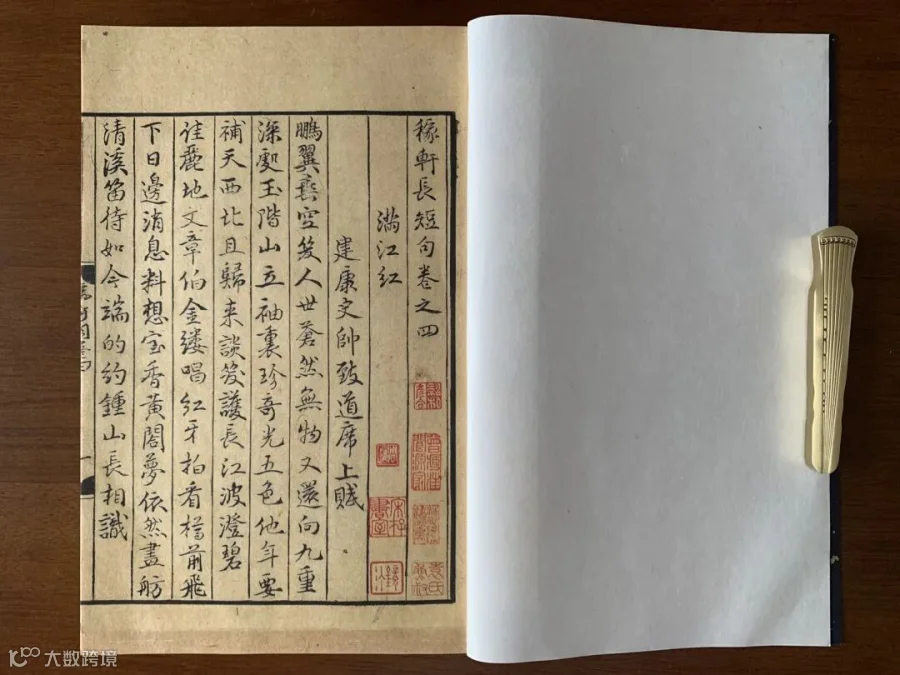 稼軒長短句卷之四
滿江紅
建康史帥致道席上賦
鵬翼垂空笑人世蒼然無物又還向九重
深處玉階山立袖裏珍奇光五色他年要
補天西北且歸来談笑護長江波澄碧
佳麗地文章伯金縷唱紅牙拍看樽前飛
下日邊消息料想宝香黃閣夢依然畫舫
清溪笛待如今端的約鍾山長相識
大数跨境